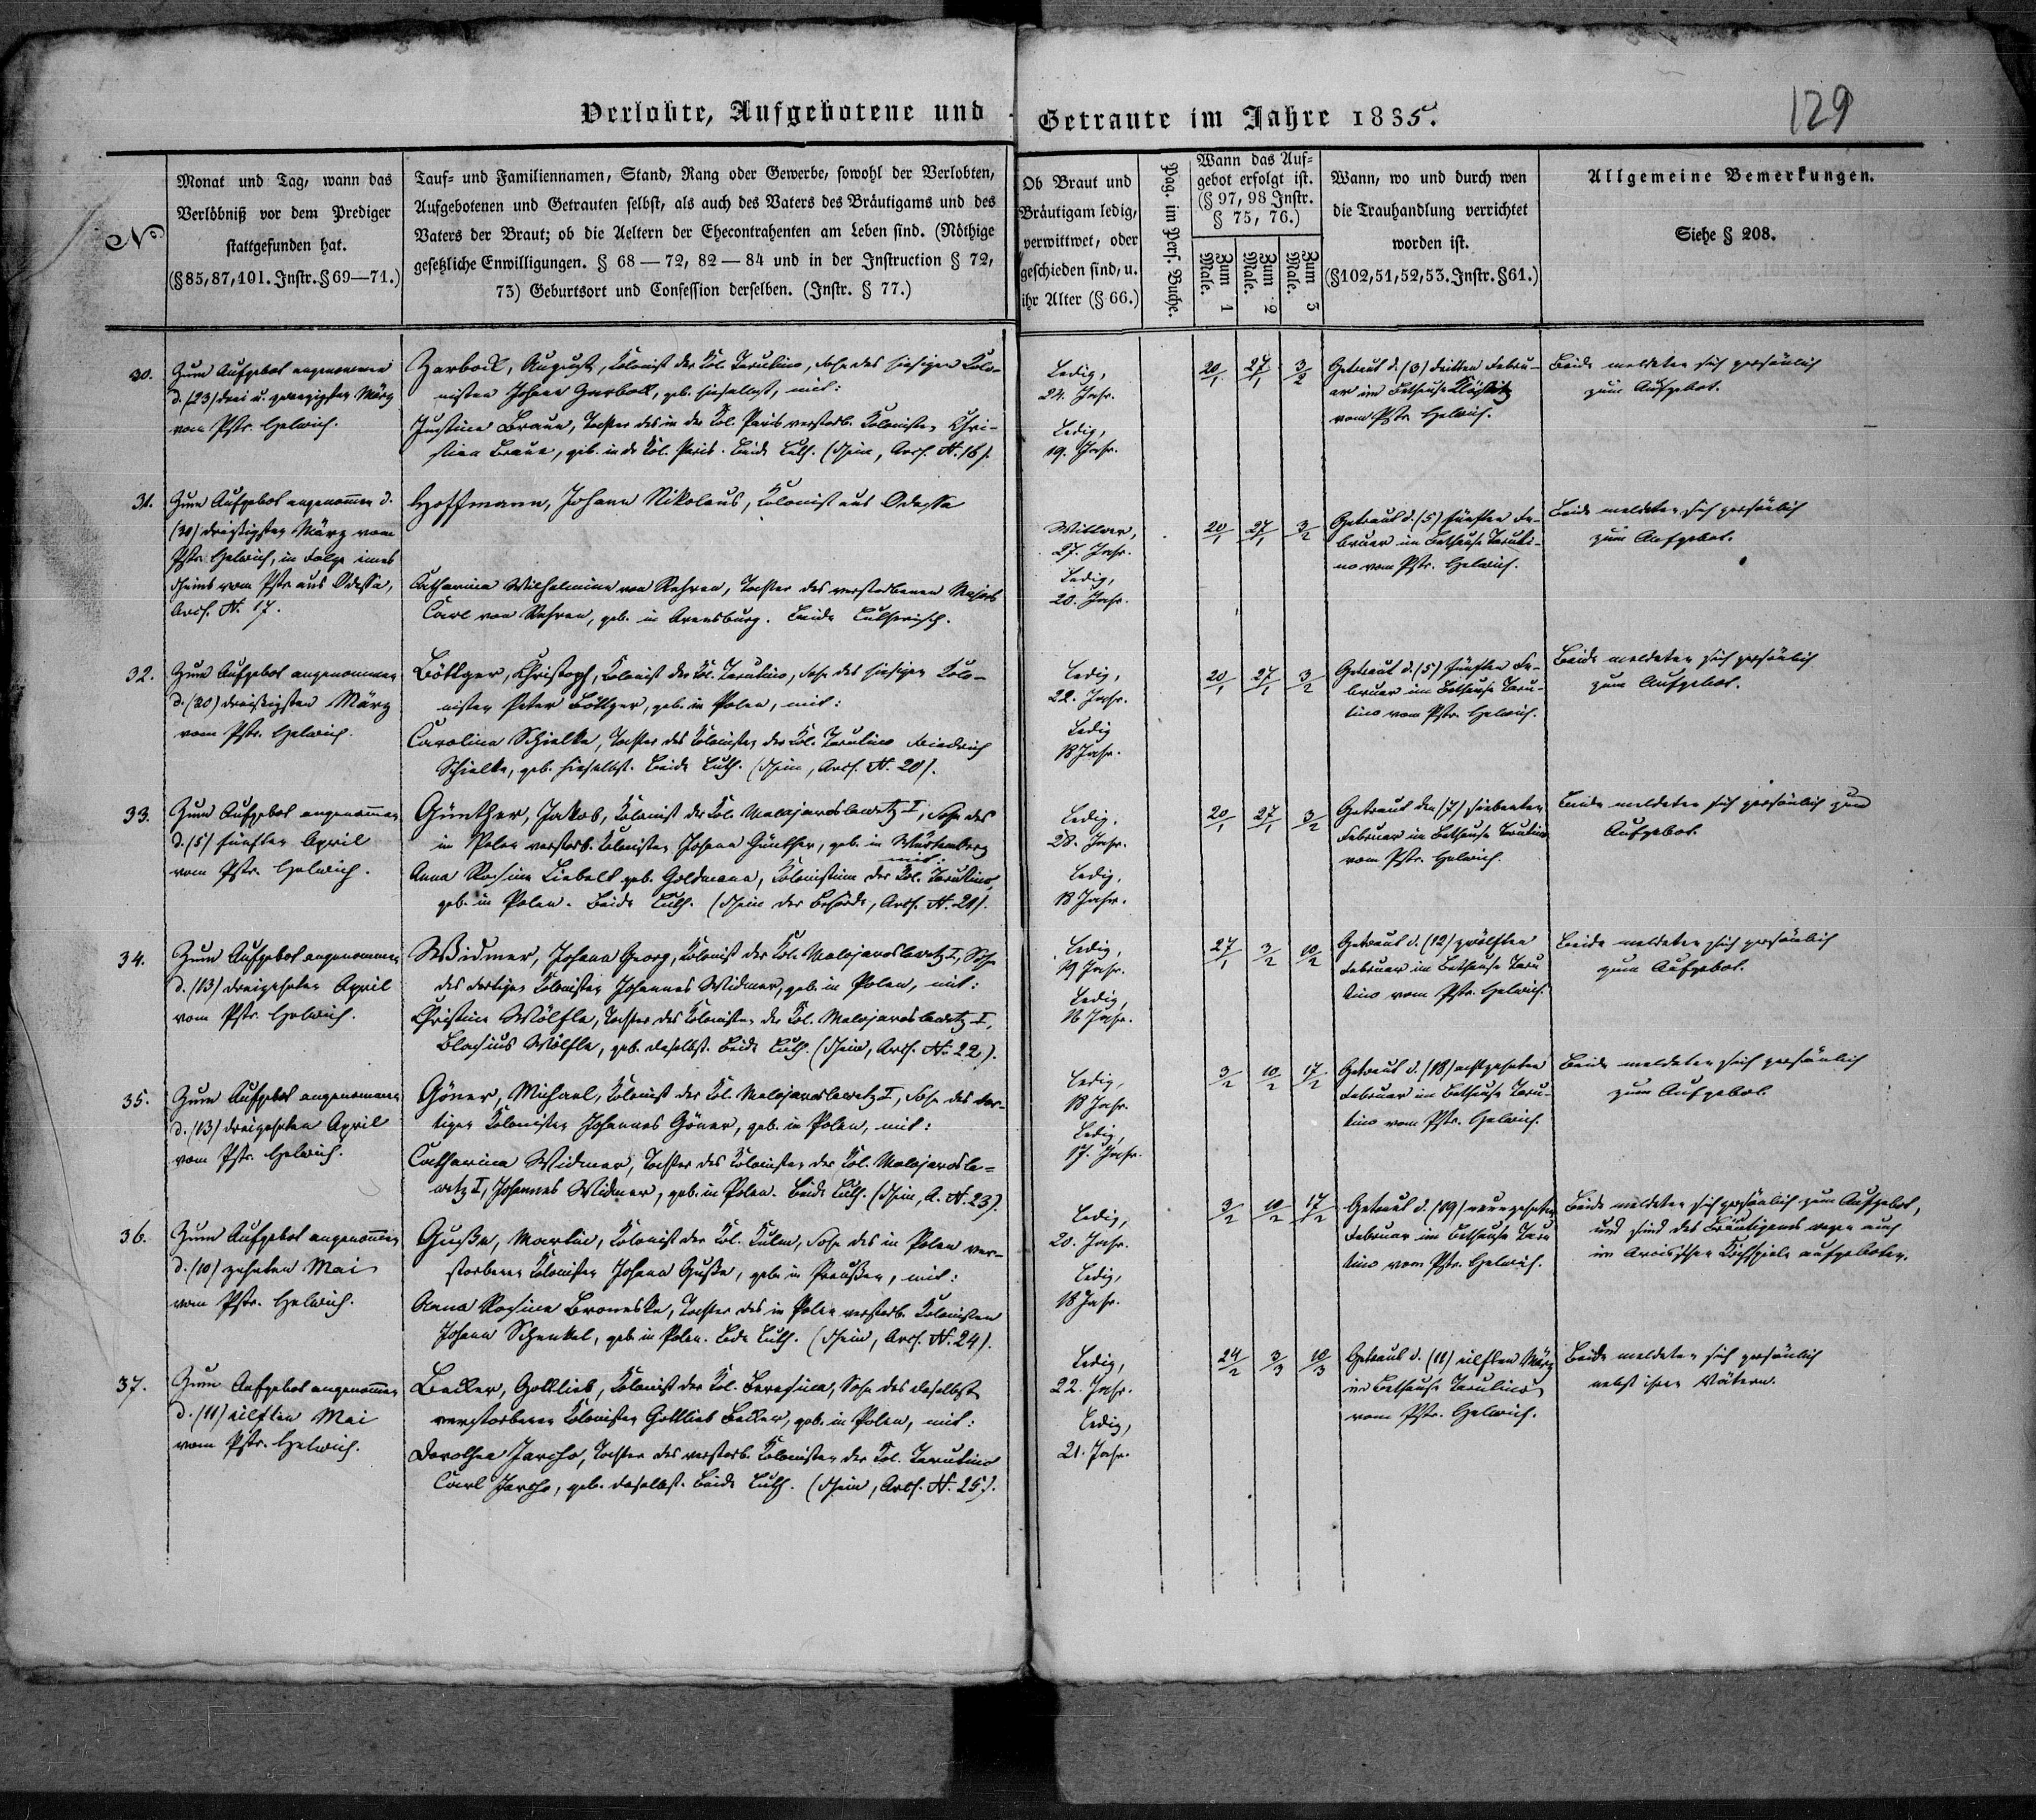 Verlobte, Aufgebotene und Getraute im Jahre 1835.
129
No.
Monat und Tag, wann das
Verlöbniß vor dem Prediger
stattgefunden hat.
(§ 85, 87, 101. Instr. § 69—71.)
Tauf= und Familiennamen, Stand, Rang oder Gewerbe, sowohl der Verlobten,
Aufgebotenen und Getrauten selbst, als auch des Vaters des Bräutigams und des
Vaters der Braut; ob die Aeltern der Ehecontrahenten am Leben sind. (Nöthige
gesetzliche Enwilligungen. § 68 — 72, 82 — 84 und in der Instruction § 72,
73) Geburtsort und Confession derselben. (Instr. § 77.)
Ob Braut und
Bräutigam ledig,
verwittwet, oder
geschieden sind, u.
ihr Alter (§ 66.)
Pag. im Pers. Buche.
Wann das Auf=
gebot erfolgt ist.
(§ 97, 98 Instr.
§ 75, 76.)
Zum 1
Male.
Zum 2
Male.
Zum 3
Male.
Wann, wo und durch wen
die Trauhandlung verrichtet
worden ist.
(§ 102, 51, 52, 53. Instr. § 61.)
Allgemeine Bemerkungen.
Siehe § 208.
30.
Zum Aufgebot angenommen
d. (23) drei u. zwanzigsten März
vom Pstr. Helwich.
August, Kolonist der Kol. Tarutino, Sohn des hiesigen Kolo-
nisten Johann, geb. hieselbst, mit:
Justine Braun, Tochter des in der Kol. Paris verstorb. Kolonisten Chri-
stian Braun, geb. in der Kol. Paris. Beide Luth. (Schein, Arch. N. 16).
Ledig,
24. Jahr.
Ledig,
19. Jahr.
20/1 27/1 3/2
Getraut d. (3) dritten Febru-
ar im Bethause Klöstitz
vom Pstr. Helwich.
Beide meldeten sich persönlich
zum Aufgebot.
31.
Zum Aufgebot angenommen d.
(30) dreißigsten März vom
Pstr. Helwich, in Folge eines
Scheins vom Pstr. aus Odessa,
Arch. N. 17.
Hoffmann, Johann Nikolaus, Kolonist aus Odessa
Catharina Wilhelmina von Rehren, Tochter des verstorbenen Majors
Carl von Rehren, geb. in Arensburg. Beide Lutherisch.
Wittwer,
27. Jahr.
Ledig,
20. Jahr.
20/1 27/1 3/2
Getraut d. (5) fünften Fe-
bruar im Bethause Taruti-
no vom Pstr. Helwich.
Beide meldeten sich persönlich
zum Aufgebot.
32.
Zum Aufgebot angenommen
d. (30) dreißigsten März
vom Pstr. Helwich.
Böttger, Christoph, Kolonist der Kol. Tarutino, Sohn des hiesigen Kolo-
nisten Peter Böttger, geb. in Polen, mit:
Carolina Schielke, Tochter des Kolonisten der Kol. Tarutino Friedrich
Schielke, geb. hieselbst. Beide Luth. (Schein, Arch. N. 20).
Ledig,
22. Jahr.
Ledig
18 Jahr.
20/1 27/1 3/2
Getraut d. (5) fünften Fe-
bruar im Bethause Taru-
tino vom Pstr. Helwich.
Beide meldeten sich persönlich
zum Aufgebot.
33.
Zum Aufgebot angenommen
d. (5) fünften April
vom Pstr. Helwich.
Günther, Jakob, Kolonist der Kol. Malojaroslawetz I, Sohn des
in Polen verstorb. Kolonisten Johann Günther, geb. in Würtemberg
mit:
Anna Rosina Liebelt geb. Goldmann, Kolonistinn der Kol. Tarutino,
geb. in Polen. Beide Luth. (Schein der Behörde, Arch. N. 21).
Ledig,
28. Jahr.
Ledig,
18 Jahr.
20/1 27/1 3/2
Getraut den (7) siebenten
Februar im Bethause Tarutino
vom Pstr. Helwich.
Beide meldeten sich persönlich zum
Aufgebot.
34.
Zum Aufgebot angenommen
d. (13) dreizehnten April
vom Pstr. Helwich.
Widmer, Johann Georg, Kolonist der Kol. Malojaroslawetz I, Sohn
des dortigen Kolonisten Johannes Widmer, geb. in Polen, mit:
Christine Wölfle, Tochter des Kolonisten der Kol. Malojaroslawetz I,
Blasius Wölfle, geb. daselbst. Beide Luth. (Schein, Arch. N. 22).
Ledig,
19 Jahr.
Ledig,
16 Jahr.
27/1 3/2 10/2
Getraut d. (12) zwölften
Februar im Bethause Taru
tino vom Pstr. Helwich.
Beide meldeten sich persönlich
zum Aufgebot.
35.
Zum Aufgebot angenommen
d. (13) dreizehnten April
vom Pstr. Helwich.
Göner, Michael, Kolonist der Kol. Malojaroslawetz I, Sohn des dor-
tigen Kolonisten Johannes Göner, geb. in Polen, mit:
Catharina Widmer, Tochter des Kolonisten der Kol. Malojarosla-
wetz I, Johannes Widmer, geb. in Polen. Beide Luth. (Schein, A. N. 23).
Ledig,
18 Jahr.
Ledig,
17. Jahr.
3/2 10/2 17/2
Getraut d. (18) achtzehnten
Februar im Bethause Taru-
tino vom Pstr. Helwich.
Beide meldeten sich persönlich
zum Aufgebot.
36.
Zum Aufgebot angenommen
d. (10) zehnten Mai
vom Pstr. Helwich.
Gußa, Martin, Kolonist der Kol. Kulm, Sohn des in Polen ver-
storbenen Kolonisten Johann Gußa, geb. in Preußen, mit:
Anna Rosina Broneske, Tochter des in Polen verstorb. Kolonisten
Johann Schenkel, geb. in Polen. Beide Luth. (Schein, Arch. N. 24).
Ledig,
20. Jahr.
Ledig,
18 Jahr.
3/2 10/2 17/2
Getraut d. (19) neunzehnten
Februar im Bethause Taru
tino vom Pstr. Helwich.
Beide meldeten sich persönlich zum Aufgebot,
und sind des Bräutigams wegen auch
im Kirchspiele aufgeboten.
37.
Zum Aufgebot angenommen
d. (11) eilften Mai
vom Pstr. Helwich.
Becker, Gottlieb, Kolonist der Kol. Beresina, Sohn des daselbst
verstorbenen Kolonisten Gottlieb Becker, geb. in Polen, mit:
Dorothea Jarcho, Tochter des verstorb. Kolonisten der Kol. Tarutino
Carl Jarcho, geb. daselbst. Beide Luth. (Schein, Arch. N. 25).
Ledig,
22. Jahr.
Ledig,
21. Jahr.
24/2 3/3 10/3
Getraut d. (11) eilften März
im Bethause Tarutino
vom Pstr. Helwich.
Beide meldeten sich persönlich
nebst ihren Vätern.